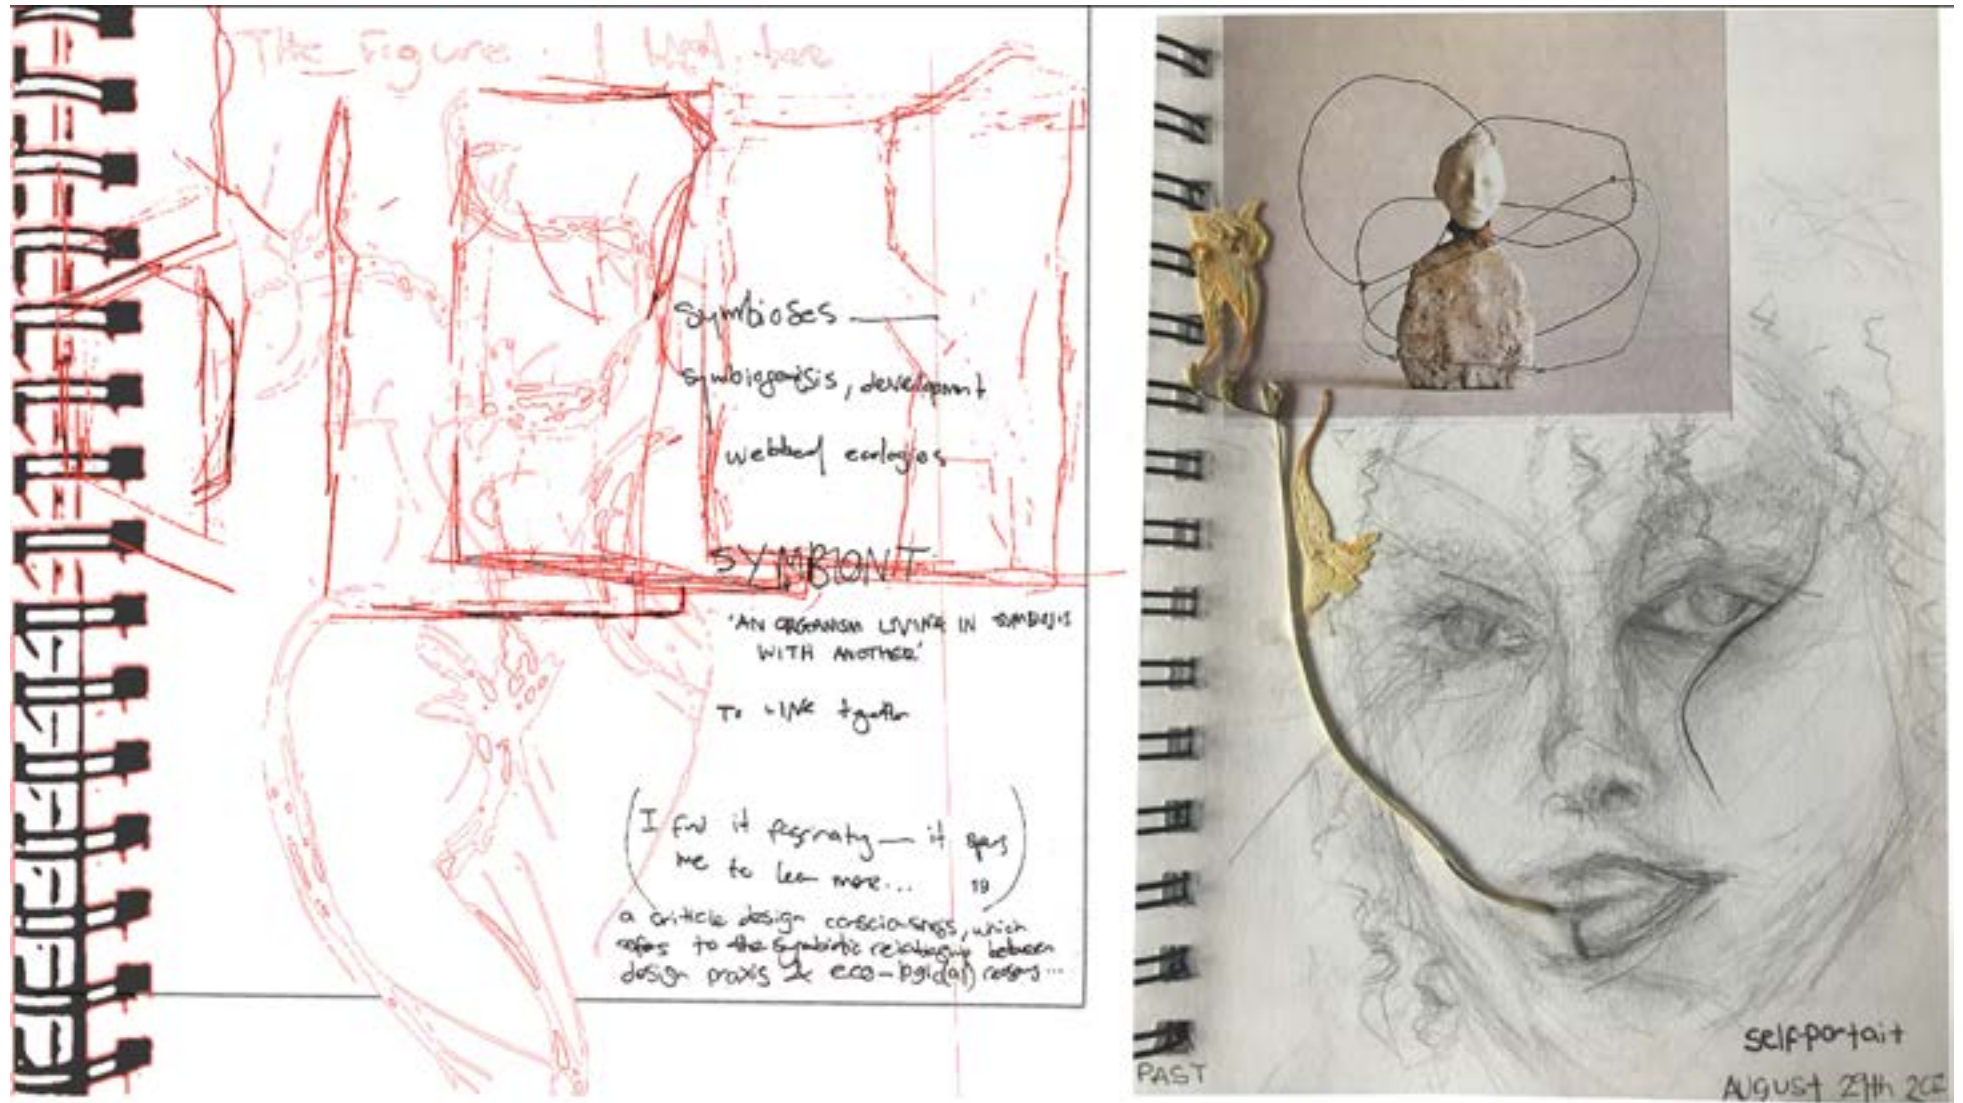 The Figure
symbioses
symbiogenisis, development
webbed ecologies
SYMBIONT
'AN ORGANISM LIVING IN SYMBIOSIS
WITH ANOTHER'
To LINK together
(I find it fascinating — it opens
me to learn more... 19)
a criticle design consciousness, which
refers to the symbiotic relationship between
design praxis & eco-logic(al) reasons...
self-portait
PAST
AUGUST 29th 202